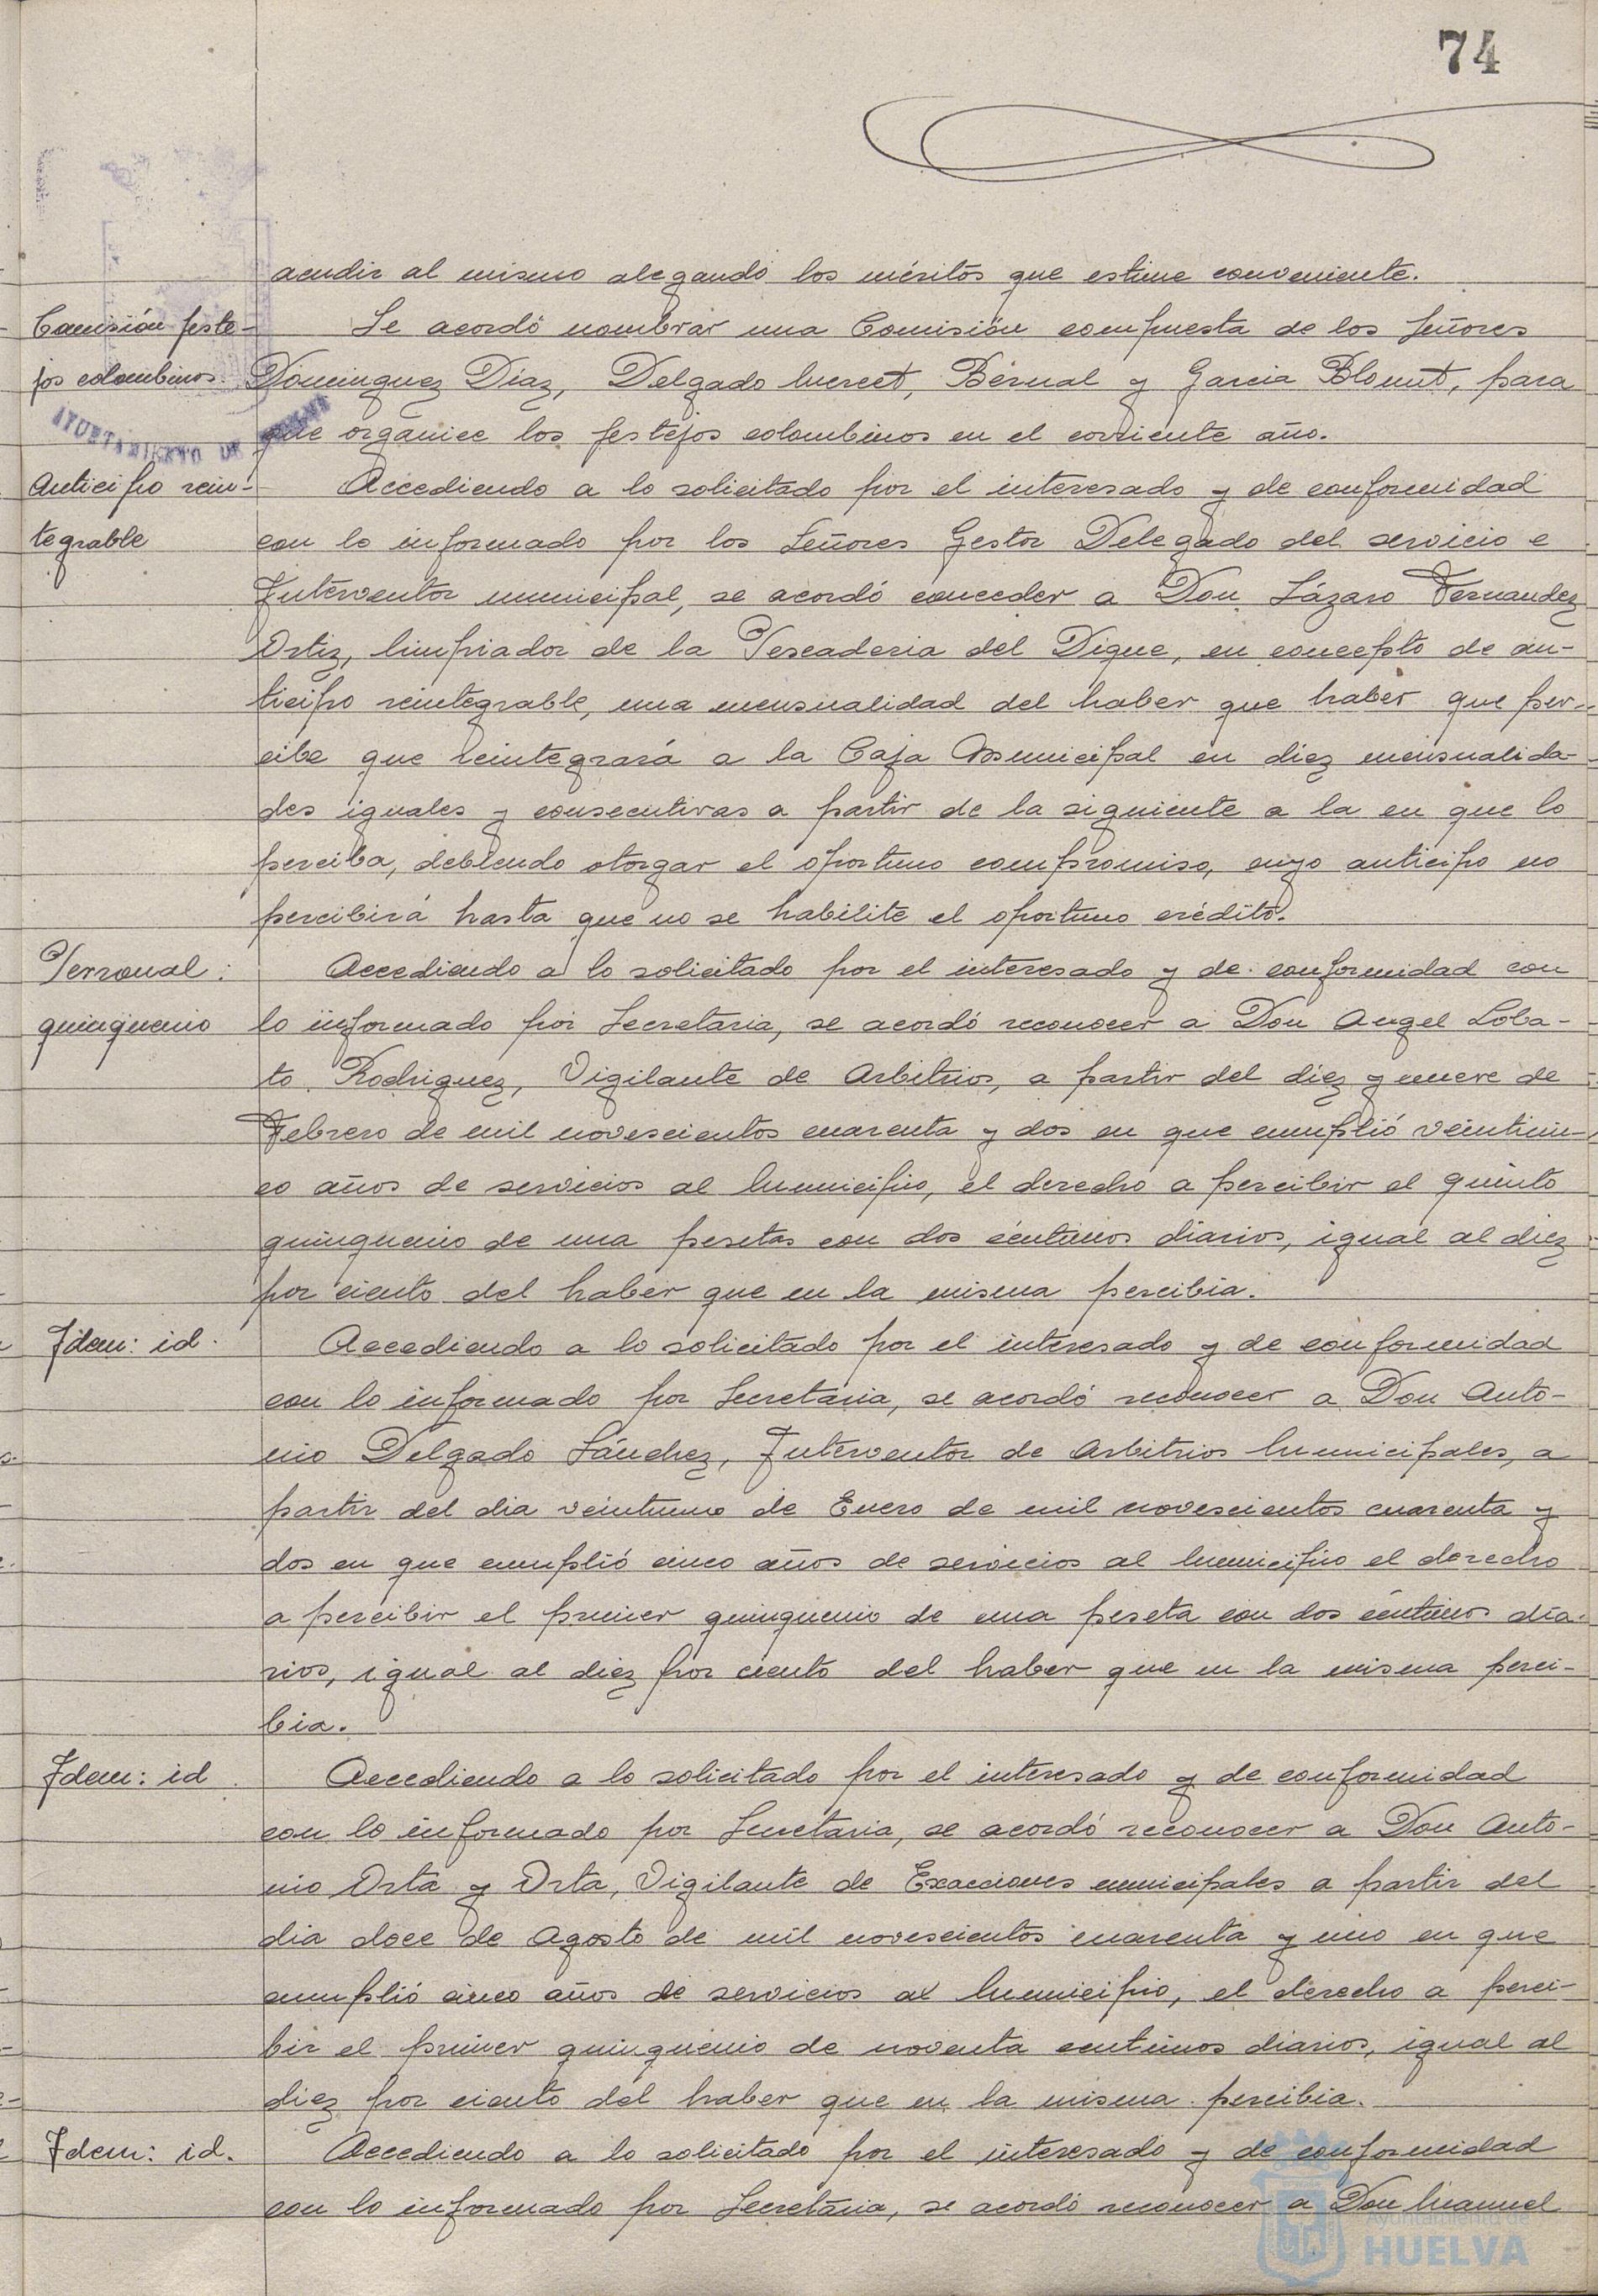 74
acudir al mismo alegando los méritos que estime conveniente.
Comisión feste-
jos colombinos.
Se acordó nombrar una Comisión compuesta de los Señores
Dominguez Diaz, Delgado Mercet, Bernal y Garcia Blount, para
que organice los festejos colombinos en el corriente año.
AYUNTAMIENTO DE
Anticipo rein-
tegrable
Accediendo a lo solicitado por el interesado y de conformidad
con lo informado por los Señores Gestor Delegado del servicio e
Interventor municipal, se acordó conceder a Don Lázaro Fernandez
Ortiz, limpiador de la Pescaderia del Dique, en concepto de an-
ticipo reintegrable, una mensualidad del haber que haber que per-
cibe que reintegrará a la Caja Municipal en diez mensualida-
des iguales y consecutivas a partir de la siguiente a la en que lo
perciba, debiendo otorgar el oportuno compromiso, cuyo anticipo no
percibirá hasta que no se habilite el oportuno crédito.
Personal:
quinquenio
Accediendo a lo solicitado por el interesado y de conformidad con
lo informado por Secretaria, se acordó reconocer a Don Angel Loba-
to Rodriguez, Vigilante de Arbitrios, a partir del diez y nueve de
Febrero de mil novescientos cuarenta y dos en que cumplió veinticin-
co años de servicios al Municipio, el derecho a percibir el quinto
quinquenio de una pesetas con dos céntimos diarios, igual al diez
por ciento del haber que en la misma percibia.
Idem: id.
Accediendo a lo solicitado por el interesado y de conformidad
con lo informado por Secretaria, se acordó reconocer a Don Anto-
nio Delgado Sánchez, Interventor de Arbitrios Municipales, a
partir del dia veintiuno de Enero de mil novescientos cuarenta y
dos en que cumplió cinco años de servicios al Municipio el derecho
a percibir el primer quinquenio de una peseta con dos céntimos dia-
rios, igual al diez por ciento del haber que en la misma perci-
bia.
Idem: id
Accediendo a lo solicitado por el interesado y de conformidad
con lo informado por Secretaria, se acordó reconocer a Don Anto-
nio Orta y Orta, Vigilante de Exacciones municipales a partir del
dia doce de Agosto de mil novescientos cuarenta y uno en que
cumplió cinco años de servicios al Municipio, el derecho a perci-
bir el primer quinquenio de noventa centimos diarios, igual al
diez por ciento del haber que en la misma percibia.
Idem: id.
Accediendo a lo solicitado por el interesado y de conformidad
con lo informado por Secretaria, se acordó reconocer a Don Manuel
Ayuntamiento de
HUELVA